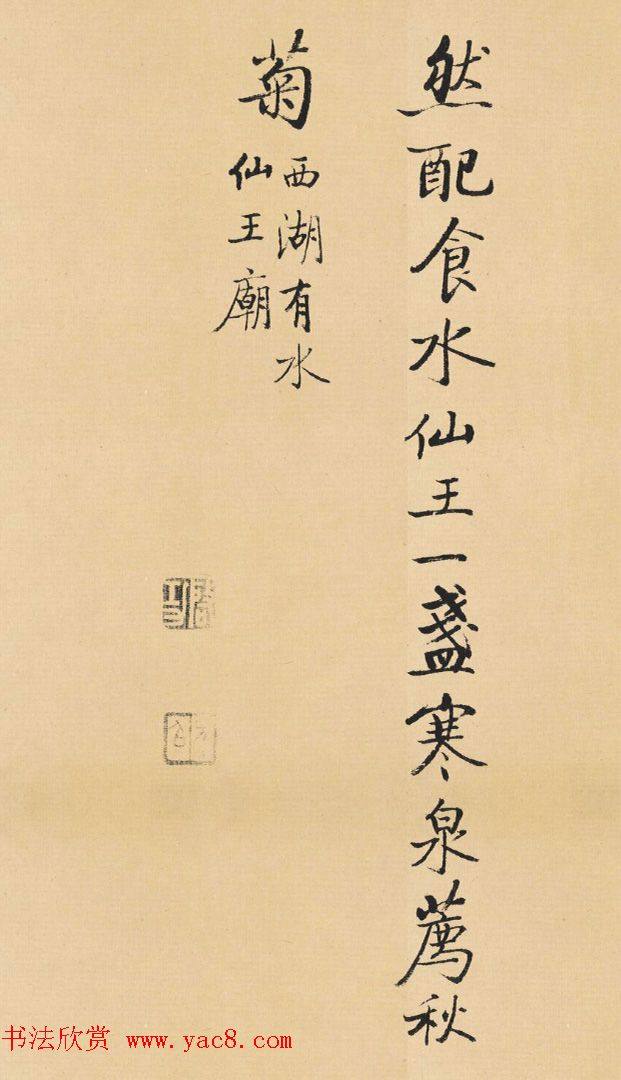 然配食水仙王一盏寒泉薦秋
菊
西湖有水
仙王廟
书法欣赏 www.yac8.com